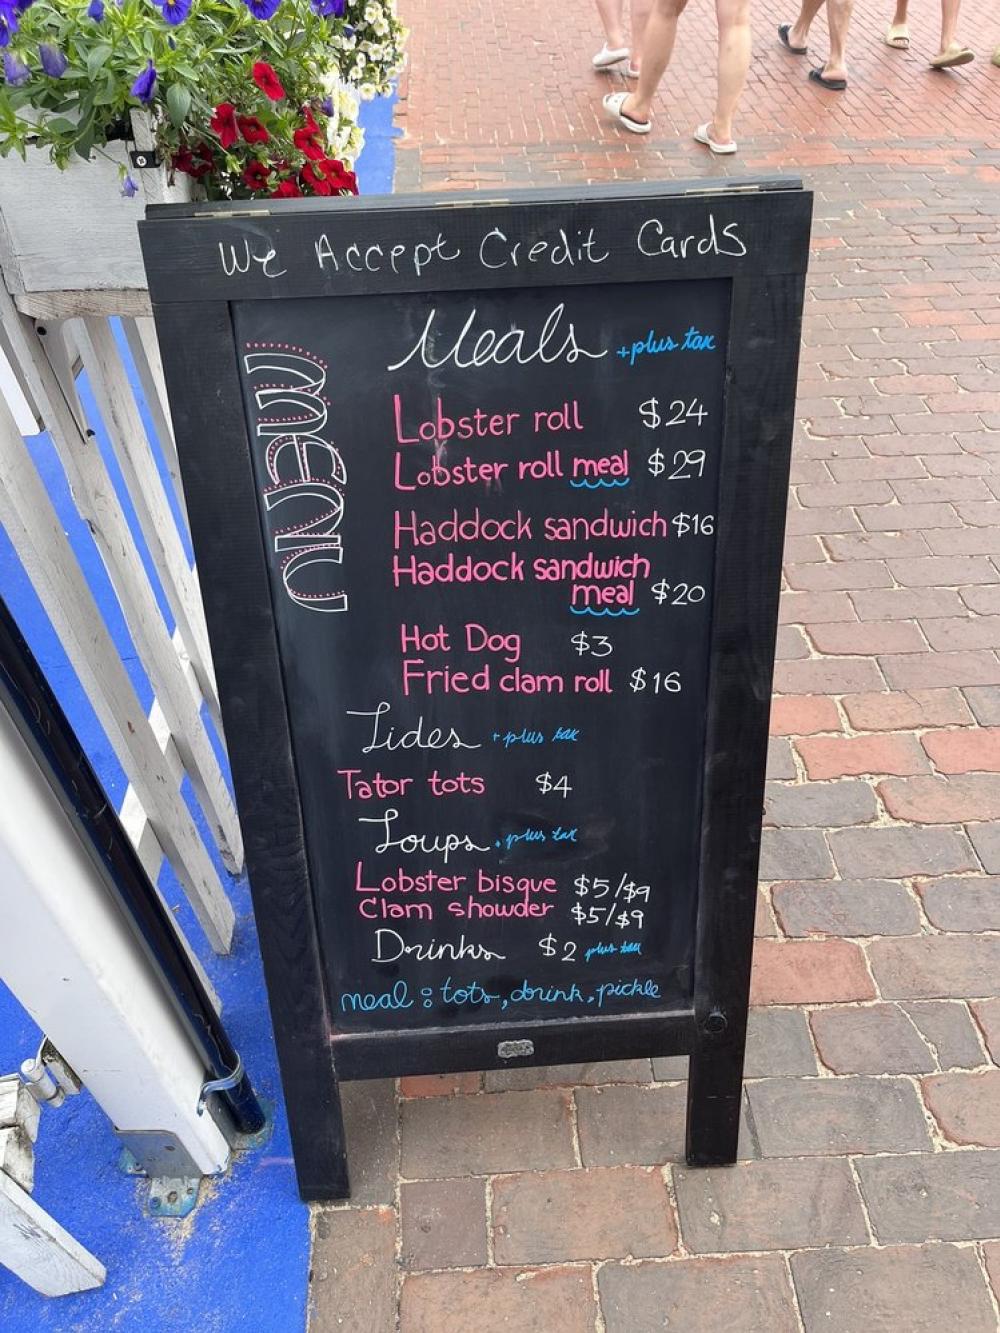 We Accept Credit Cards
menu
Meals +plus tax
Lobster roll $24
Lobster roll meal $29
Haddock sandwich $16
Haddock sandwich
meal $20
Hot Dog $3
Fried clam roll $16
Sides +plus tax
Tator tots $4
Soups +plus tax
Lobster bisque $5/$9
Clam showder $5/$9
Drinks $2 plus tax
meal: tots, drink, pickle